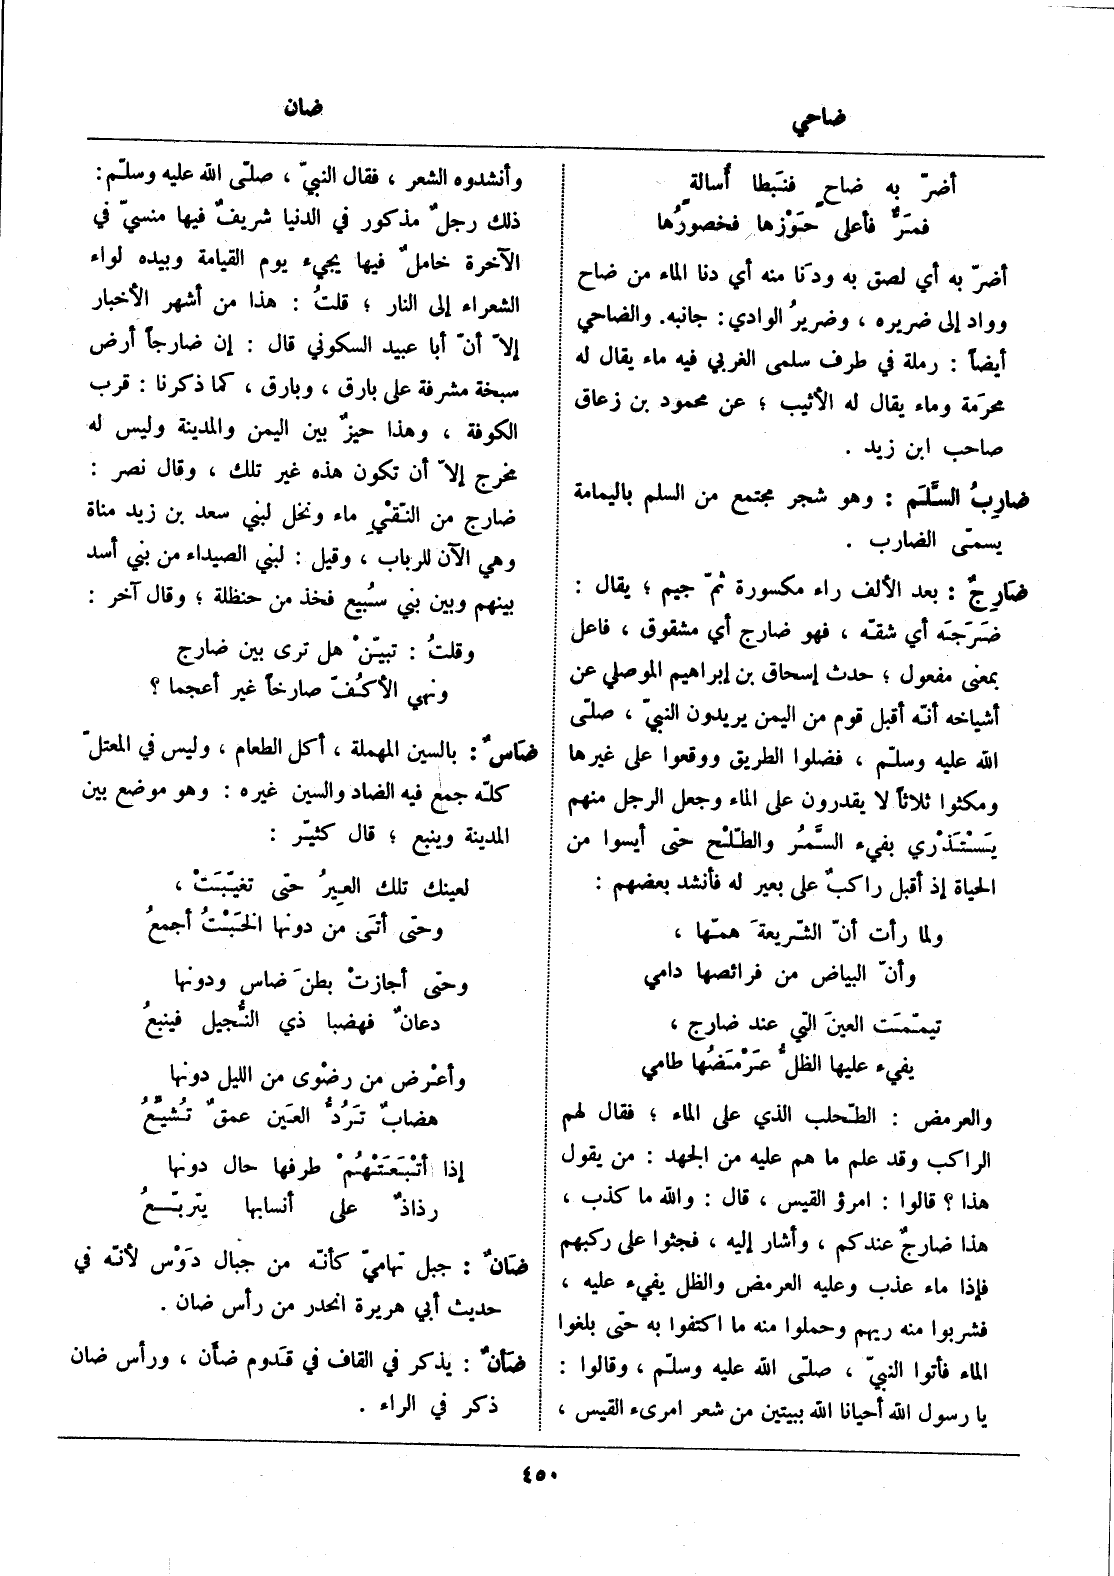 ضاحي
ضان
أضرّ به ضاحٍ فنَبطا أُسالةٍ
فمَرٌّ فأعلى حَوْزِها فخصورُها
أضرّ به أي لصق به ودَنا منه أي دنا الماء من ضاح
وواد إلى ضريره ، وضريرُ الوادي : جانبه . والضاحي
أيضاً : رملة في طرف سلمى الغربي فيه ماء يقال له
محرّمة وماء يقال له الأثيب ؛ عن محمود بن زعاق
صاحب ابن زيد .
ضارِبُ السَّلَم : وهو شجر مجتمع من السلم باليمامة
يسمّى الضارب .
ضَارِجٌ : بعد الألف راء مكسورة ثمّ جيم ؛ يقال :
ضَرَجَه أي شقّه ، فهو ضارج أي مشقوق ، فاعل
بمعنى مفعول ؛ حدث إسحاق بن إبراهيم الموصلي عن
أشياخه أنّه أقبل قوم من اليمن يريدون النبيّ ، صلّى
الله عليه وسلّم ، فضلوا الطريق ووقعوا على غيرها
ومكثوا ثلاثاً لا يقدرون على الماء وجعل الرجل منهم
يَسْتَذْري بفيء السَّمُر والطّلْح حتّى أيسوا من
الحياة إذ أقبل راكبٌ على بعير له فأنشد بعضهم :
ولما رأت أنّ الشّريعةَ همّها ،
وأنّ البياض من فرائصها دامي
تيمّمَت العينَ التي عند ضارج ،
يفيء عليها الظلُّ عَرْمَضُها طامي
والعرمض : الطّحلب الذي على الماء ؛ فقال لهم
الراكب وقد علم ما هم عليه من الجهد : من يقول
هذا ؟ قالوا : امرؤ القيس ، قال : والله ما كذب ،
هذا ضارجٌ عندكم ، وأشار إليه ، فجثوا على ركبهم
فإذا ماء عذب وعليه العرمض والظل يفيء عليه ،
فشربوا منه ريهم وحملوا منه ما اكتفوا به حتّى بلغوا
الماء فأتوا النبيّ ، صلّى الله عليه وسلّم ، وقالوا :
يا رسول الله أحيانا الله ببيتين من شعر امرىء القيس ،
وأنشدوه الشعر ، فقال النبيّ ، صلّى الله عليه وسلّم :
ذلك رجلٌ مذكور في الدنيا شريفٌ فيها منسيّ في
الآخرة خاملٌ فيها يجيء يوم القيامة وبيده لواء
الشعراء إلى النار ؛ قلتُ : هذا من أشهر الأخبار
إلاّ أنّ أبا عبيد السكوني قال : إن ضارجاً أرض
سبخة مشرفة على بارق ، وبارق ، كما ذكرنا : قرب
الكوفة ، وهذا حيزٌ بين اليمن والمدينة وليس له
مخرج إلاّ أن تكون هذه غير تلك ، وقال نصر :
ضارج من النّقْيِ ماء ونخل لبني سعد بن زيد مناة
وهي الآن للرباب ، وقيل : لبني الصيداء من بني أسد
بينهم وبين بني سُبيع فخذ من حنظلة ؛ وقال آخر :
وقلتُ : تبيّنْ هل ترى بين ضارج
ونهي الأكُفّ صارخاً غير أعجما ؟
ضَاسٌ : بالسين المهملة ، أكل الطعام ، وليس في المعتلّ
كلّه جمع فيه الضاد والسين غيره : وهو موضع بين
المدينة وينبع ؛ قال كثيّر :
لعينك تلك العيرُ حتّى تغيّبَتْ ،
وحتّى أتَى من دونها الخَبْتُ أجمعُ
وحتّى أجازتْ بطنَ ضاس ودونها
دعانٌ فهضبا ذي النُّجيل فينبعُ
وأعْرض من رضْوى من الليل دونها
هضابٌ تَرُدُّ العَين عمقٌ تُشيّعُ
إذا أتْبَعَتْهُمْ طرفها حال دونها
رذاذٌ على أنسابها يتربّعُ
ضَانٌ : جبل تهاميّ كأنّه من جبال دَوْس لأنّه في
حديث أبي هريرة انحدر من رأس ضان .
ضَأنٌ : يذكر في القاف في قدوم ضأن ، ورأس ضان
ذكر في الراء .
٤٥٠